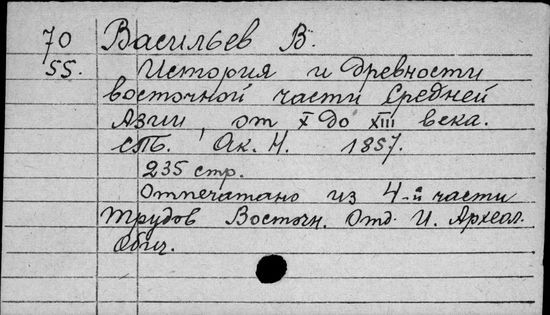 70 Васильев В.
55. История и древности
восточной части Средней
Азии, от X до XIII века.
СПб. Ак. Н. 1857.
235 стр.
Отпечатано из 4-й части
Трудов Восточн. Отд. И. Археол.
Общ.